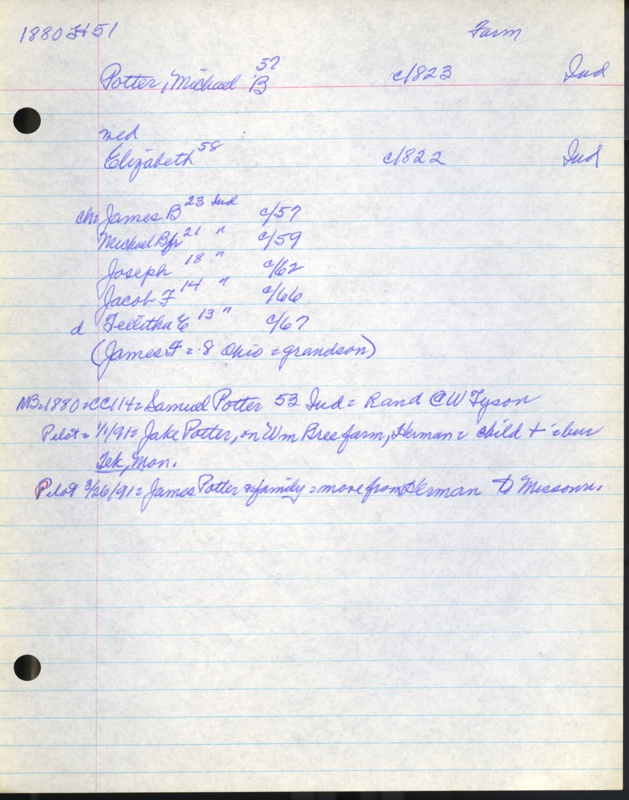 1880 H51 Farm
Potter, Michael B 57 c1823 Ind
med
Elizabeth 58 c1822 Ind
ch= James B 23 Ind c/57
Michael B Jr 21 " c/59
Joseph 18 " c/62
Jacob F 14 " c/66
d Tellitha E 13 " c/67
(James F = 8 Ohio = grandson)
NB=1880=CC114= Samuel Potter 53 Ind = R and CW Tyson
Pilot = 1/1/91= Jake Potter, on Wm Bres farm, Herman = child + =bur
Tek, Mon.
Pilot 3/26/91= James Potter & family = move from Herman to Missouri.